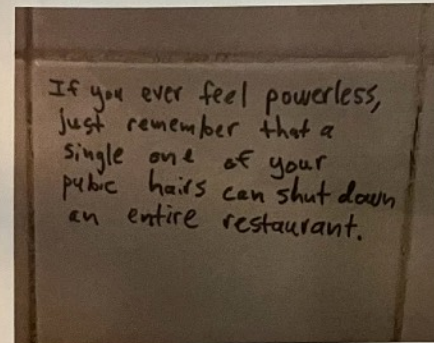 If you ever feel powerless,
just remember that a
single one of your
pubic hairs can shut down
an entire restaurant.